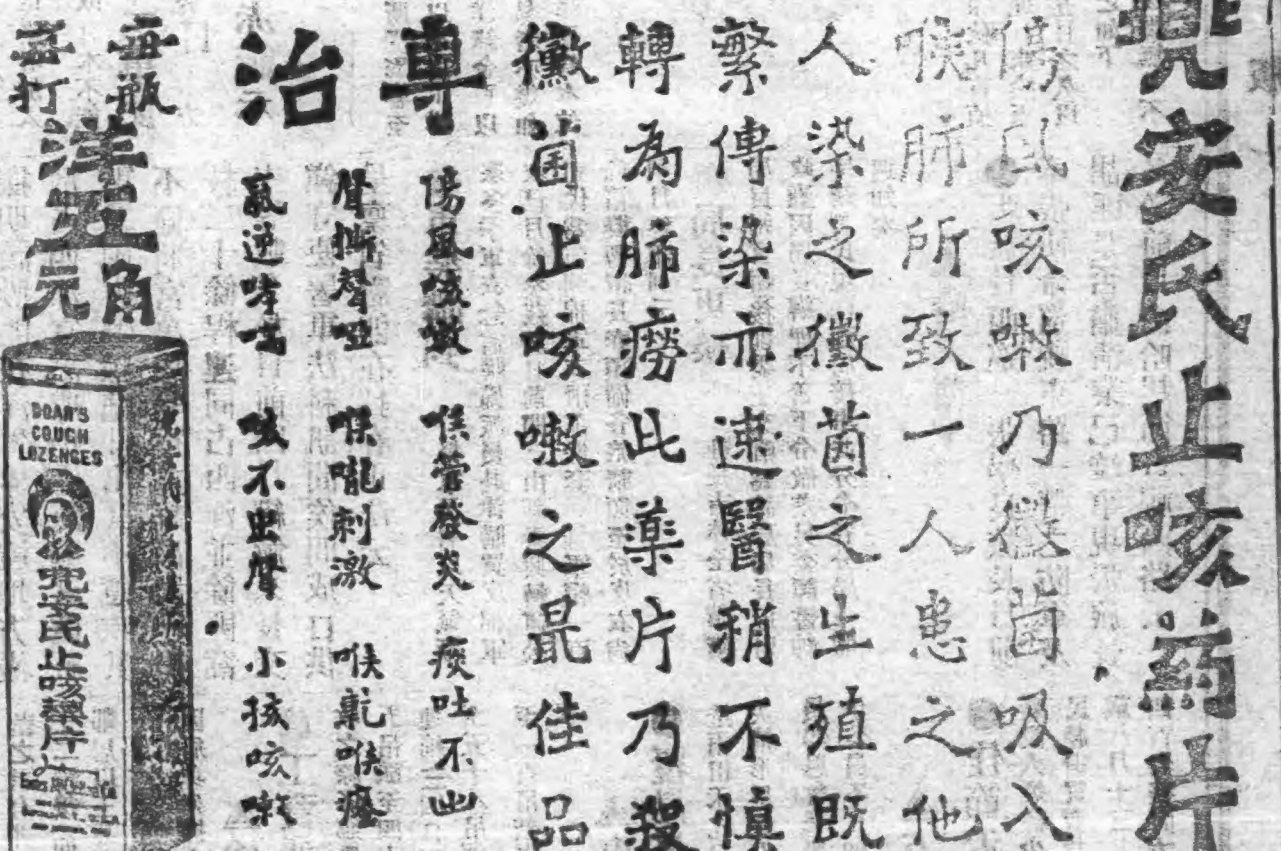 兜安氏止咳药片
傷風咳嗽乃微菌吸入
喉肺所致一人患之他
人染之微菌之生殖既
繁傳染亦速醫稍不慎
轉為肺癆此藥片乃殺
黴菌止咳嗽之最佳品
專治
傷風咳嗽 喉管發炎 痰吐不出
聲嘶聲啞 喉嚨刺激 喉乾喉癢
氣逆哮喘 咳不出聲 小孩咳嗽
每瓶洋五角
每打洋五元
DOAN'S
COUGH
LOZENGES
兜安氏止咳藥片